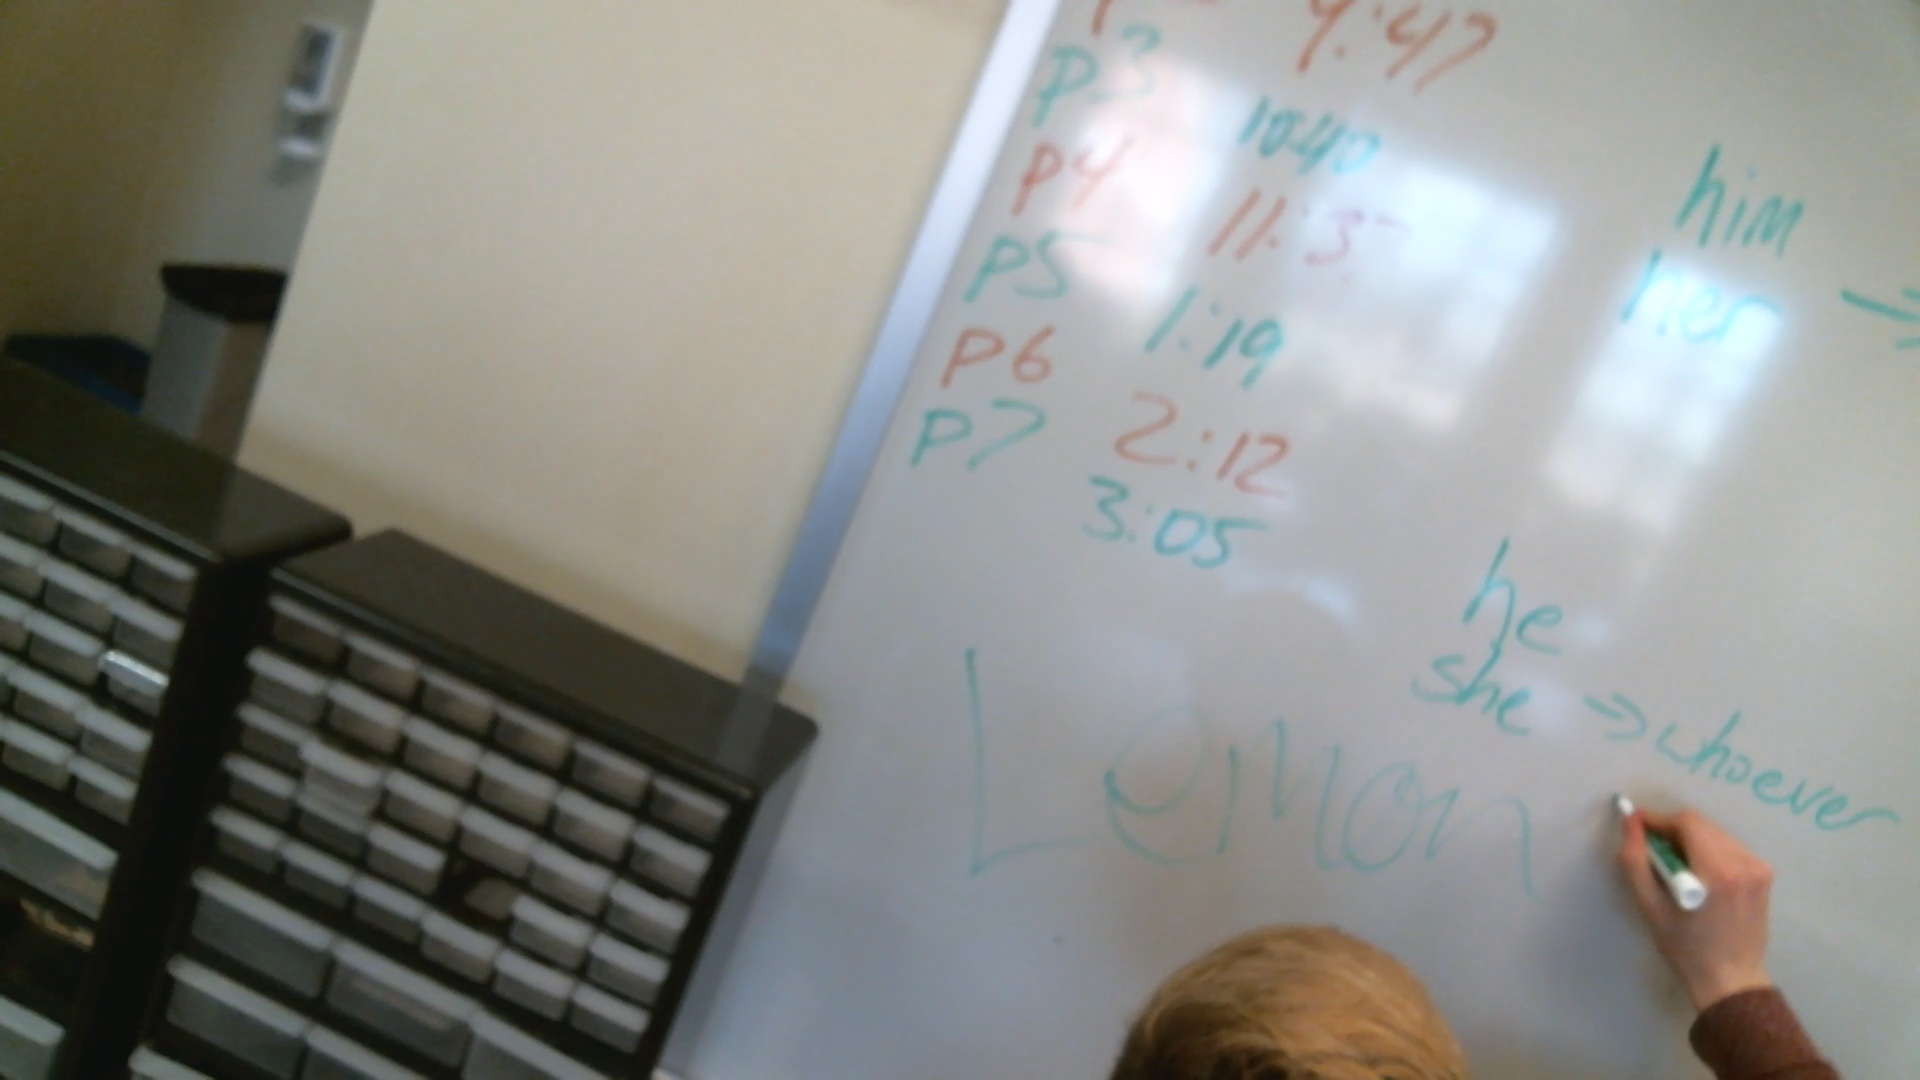 9:47
p3 10:40
p4 11:3
p5 1:19
p6 2:12
p7 3:05
him
her →
he
she → whoever
Lemon